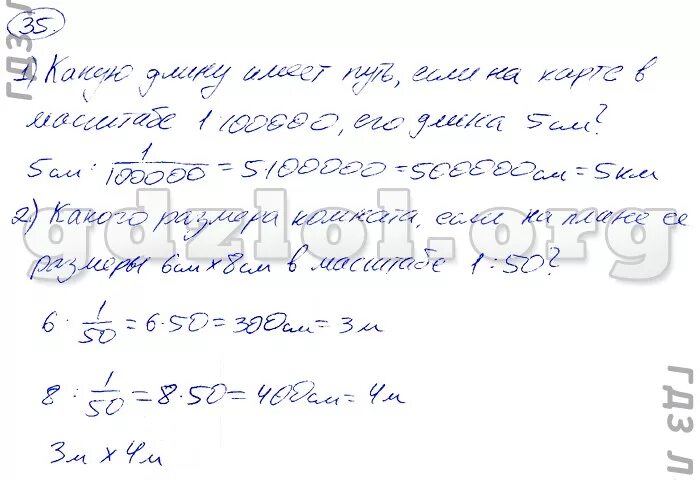 35.
1) Какую длину имеет путь, если на карте в
масштабе 1:100000, его длина 5 см?
5 см : 1/100000 = 5·100000 = 500000 см = 5 км
2) Какого размера комната, если на плане ее
размеры 6 см х 8 см в масштабе 1:50?
6 : 1/50 = 6·50 = 300 см = 3 м
8 : 1/50 = 8·50 = 400 см = 4 м
3 м х 4 м
gdzlol.org
ГДЗ Л
ГДЗ Л